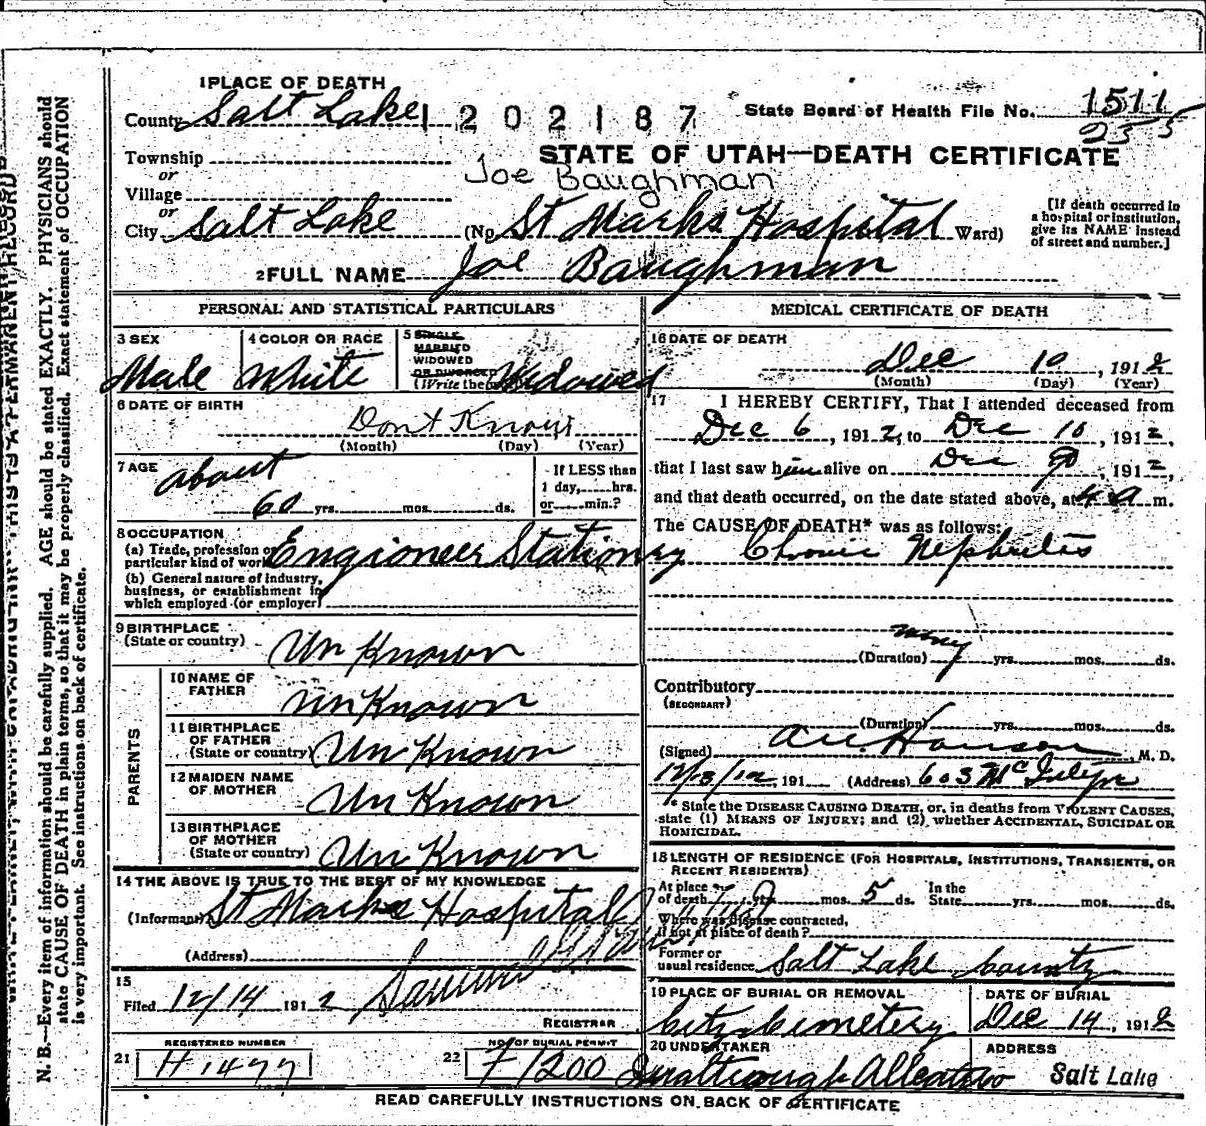 1 PLACE OF DEATH
County Salt Lake 1202187 State Board of Health File No. 1511
235
Township
or
STATE OF UTAH—DEATH CERTIFICATE
Joe Baughman
Village
or
City Salt Lake (No St Marks Hospital Ward)
[If death occurred in
a hospital or institution,
give its NAME instead
of street and number.]
2 FULL NAME Joe Baughman
PERSONAL AND STATISTICAL PARTICULARS
3 SEX
Male
4 COLOR OR RACE
White
5 SINGLE
MARRIED
WIDOWED
OR DIVORCED
(Write the Widowed
6 DATE OF BIRTH
Dont Know
(Month) (Day) (Year)
7 AGE
about
60 yrs. mos. ds.
If LESS than
1 day, hrs.
or min.?
8 OCCUPATION
(a) Trade, profession or
particular kind of work Engioneer Stationry
(b) General nature of industry,
business, or establishment in
which employed (or employer)
9 BIRTHPLACE
(State or country) Un Known
PARENTS
10 NAME OF
FATHER Un Known
11 BIRTHPLACE
OF FATHER
(State or country) Un Known
12 MAIDEN NAME
OF MOTHER Un Known
13 BIRTHPLACE
OF MOTHER
(State or country) Un Known
14 THE ABOVE IS TRUE TO THE BEST OF MY KNOWLEDGE
(Informant) St Marks Hospital
(Address)
15
Filed 12/14 1912
REGISTRAR
REGISTERED NUMBER
21 H 1477
NO. OF BURIAL PERMIT
22 F/200
MEDICAL CERTIFICATE OF DEATH
16 DATE OF DEATH
Dec 10, 1912
(Month) (Day) (Year)
17 I HEREBY CERTIFY, That I attended deceased from
Dec 6, 1912, to Dec 10, 1912,
that I last saw him alive on Dec 1912,
and that death occurred, on the date stated above, at 4 a m.
The CAUSE OF DEATH* was as follows:
Chronic Nephritis
many
(Duration) yrs. mos. ds.
Contributory
(SECONDARY)
(Duration) yrs. mos. ds.
(Signed) M. D.
191 (Address) 603
* State the DISEASE CAUSING DEATH, or, in deaths from VIOLENT CAUSES,
state (1) MEANS OF INJURY; and (2) whether ACCIDENTAL, SUICIDAL OR
HOMICIDAL.
18 LENGTH OF RESIDENCE (FOR HOSPITALS, INSTITUTIONS, TRANSIENTS, OR
RECENT RESIDENTS)
At place
of death yrs. mos. 5 ds.
In the
State yrs. mos. ds.
Where was disease contracted,
if not at place of death?
Former or
usual residence Salt Lake County
19 PLACE OF BURIAL OR REMOVAL
City Cemetery
DATE OF BURIAL
Dec 14, 1912
20 UNDERTAKER
ADDRESS
Salt Lake
READ CAREFULLY INSTRUCTIONS ON BACK OF CERTIFICATE
N. B.—Every item of information should be carefully supplied. AGE should be stated EXACTLY. PHYSICIANS should
state CAUSE OF DEATH in plain terms, so that it may be properly classified. Exact statement of OCCUPATION
is very important. See instructions on back of certificate.